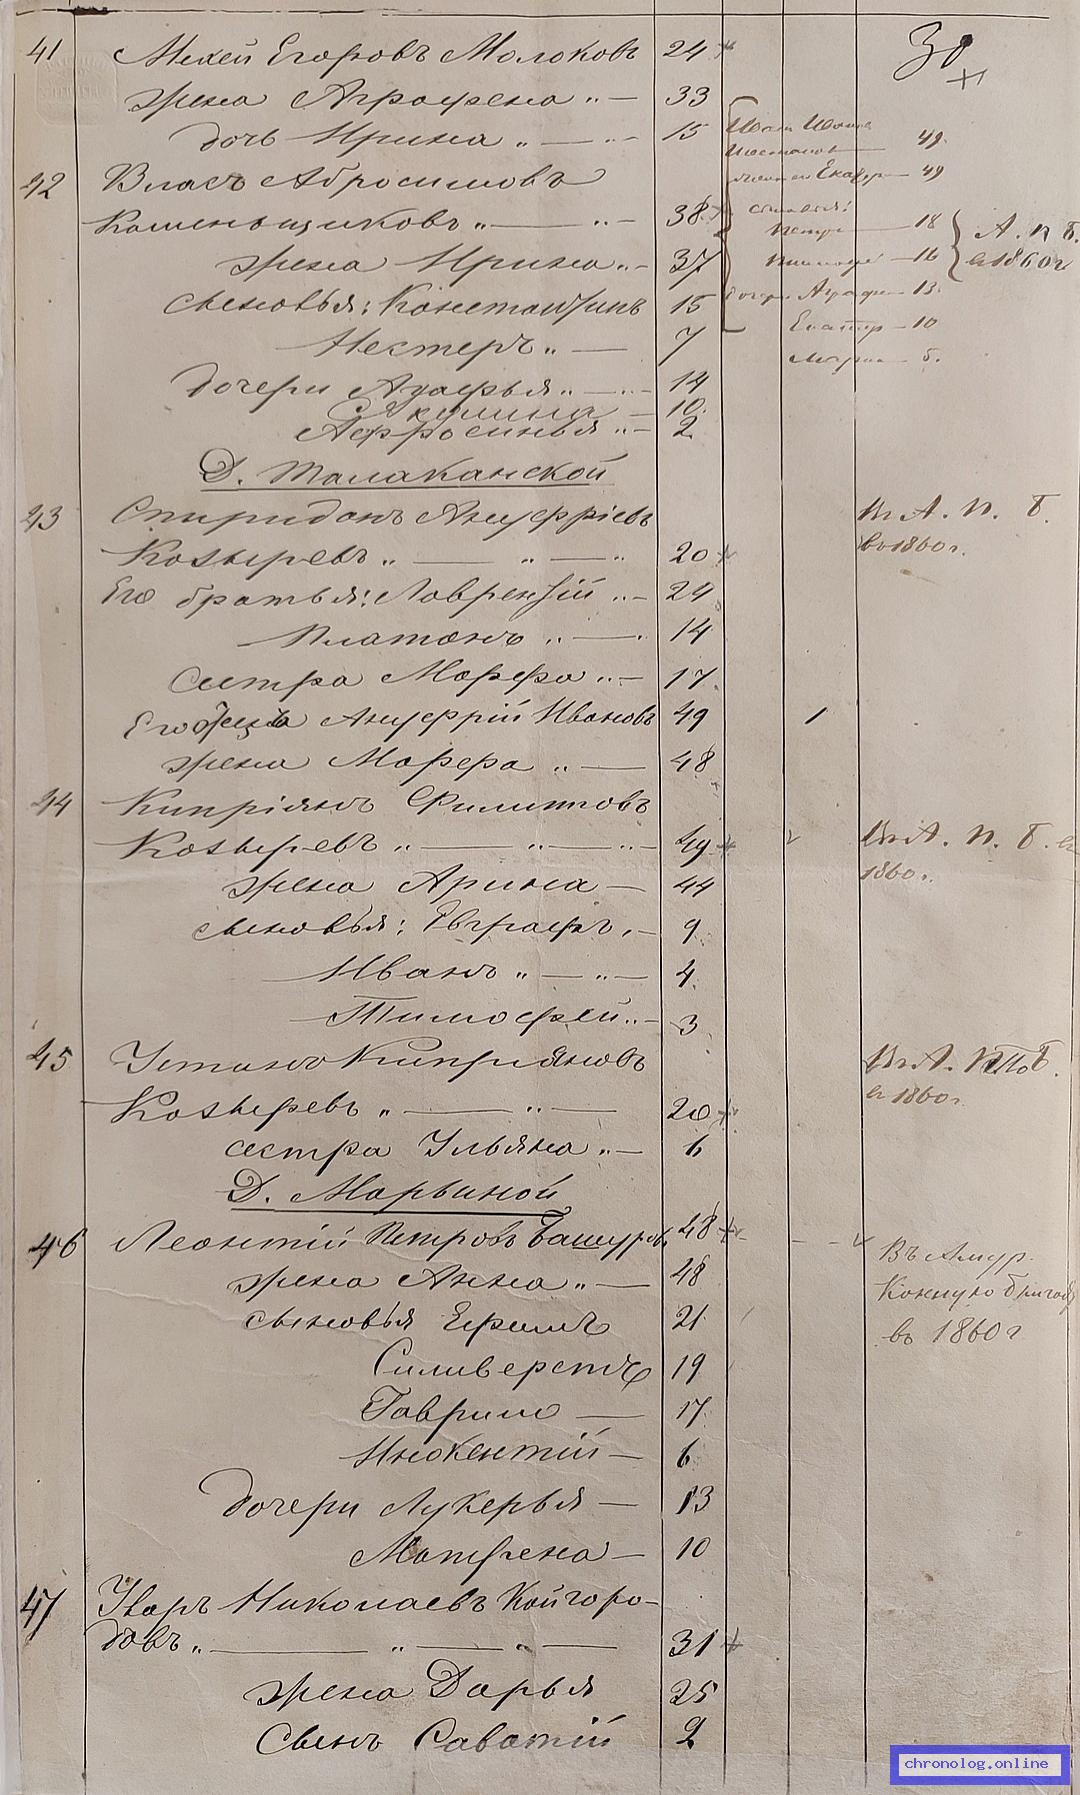 30
41 Михей Егоровъ Молоковъ 24
жена Аграфена „ — 33
дочь Ирина „ — „ — 15
42 Власъ Абросимовъ
Каменьщиковъ „ — „ — 38
жена Ирина „ — 37
сыновья: Константинъ 15
Нестеръ „ — 7
дочери Агафья „ — „ — 14
Акулина — 10
Афросинья „ — 2
Иванъ 49
Екатер — 49
сыновья:
Петръ — 18
— 16
дочери Аграфе — 13
Екатер — 10
Марья — 5
А. п. б.
въ 1860 г
Д. Малаканской
43 Спиридонъ Ануфріевъ
Козыревъ „ — „ — „ 20
Въ А. П. Б.
въ 1860 г.
Его братья: Лаврентій „ — 24
Платонъ „ — „ 14
сестра Марфа „ — 17
Его отецъ Ануфрій Ивановъ 49 1
жена Марфа „ — 48
44 Кипріянъ Филиповъ
Козыревъ „ — „ — „ — 49
Въ А. П. Б. въ
1860 г.
жена Арина — 44
сыновья: Евграфъ „ — 9
Иванъ „ — „ — 4
Тимофей „ — 3
45 Устинъ Кипріяновъ
Козыревъ „ — „ — 20
Въ А. П. Б.
въ 1860 г.
сестра Ульяна „ — 6
Д. Марьиной
46 Леонтій Петровъ Башуровъ 48
жена Анна „ — 48
Въ Амур.
Конную бригаду
въ 1860 г
сыновья Ефимъ 21
Силиверстъ 19
Гаврило — 17
Инокентій — 6
дочери Лукерья — 13
Матрена — 10
47 Уаръ Николаевъ Койгоро-
довъ „ — „ — „ — 31
жена Дарья 25
Сынъ Саватій 2
chronolog.online